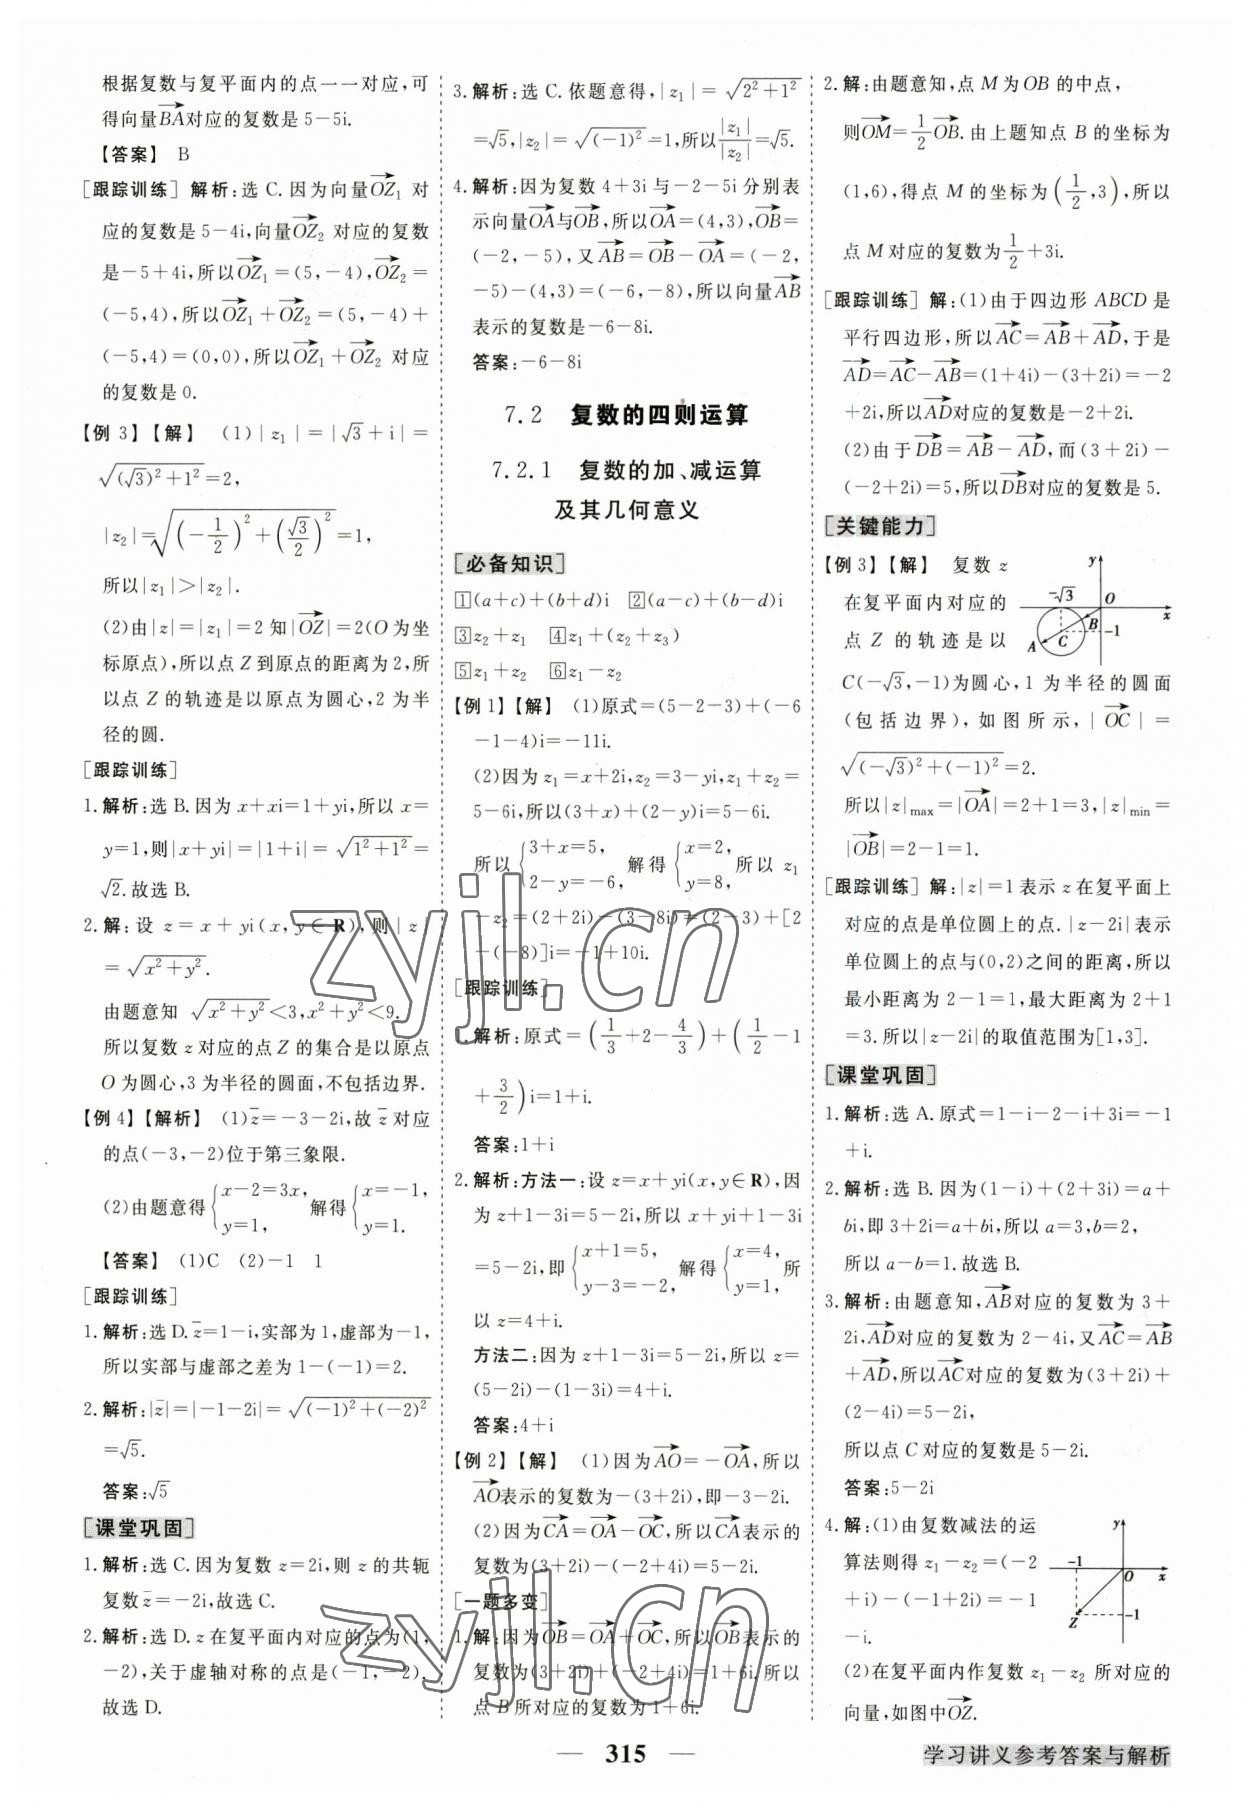 根据复数与复平面内的点一一对应,可
得向量BA对应的复数是5-5i.
【答案】 B
[跟踪训练] 解析:选C.因为向量OZ₁ 对
应的复数是5-4i,向量OZ₂ 对应的复数
是-5+4i,所以OZ₁=(5,-4),OZ₂=
(-5,4),所以OZ₁+OZ₂=(5,-4)+
(-5,4)=(0,0),所以OZ₁+OZ₂ 对应
的复数是0.
【例3】【解】 (1)|z₁|=|√3+i|=
√((√3)²+1²)=2,
|z₂|=√((-1/2)²+(√3/2)²)=1,
所以|z₁|>|z₂|.
(2)由|z|=|z₁|=2知|OZ|=2(O为坐
标原点),所以点Z到原点的距离为2,所
以点Z的轨迹是以原点为圆心,2为半
径的圆.
[跟踪训练]
1.解析:选B.因为x+xi=1+yi,所以x=
y=1,则|x+yi|=|1+i|=√(1²+1²)=
√2.故选B.
2.解:设 z=x+yi(x,y∈R),则|z|
=√(x²+y²).
由题意知 √(x²+y²)<3,x²+y²<9.
所以复数z对应的点Z的集合是以原点
O为圆心,3为半径的圆面,不包括边界.
【例4】【解析】 (1)z̄=-3-2i,故z̄对应
的点(-3,-2)位于第三象限.
(2)由题意得{x-2=3x, y=1, 解得{x=-1, y=1.
【答案】 (1)C (2)-1 1
[跟踪训练]
1.解析:选D.z̄=1-i,实部为1,虚部为-1,
所以实部与虚部之差为1-(-1)=2.
2.解析:|z̄|=|-1-2i|=√((-1)²+(-2)²)
=√5.
答案:√5
[课堂巩固]
1.解析:选C.因为复数z=2i,则z的共轭
复数z̄=-2i,故选C.
2.解析:选D.z在复平面内对应的点为(1,
-2),关于虚轴对称的点是(-1,-2).
故选D.
3.解析:选C.依题意得,|z₁|=√(2²+1²)
=√5,|z₂|=√((-1)²)=1,所以|z₁|/|z₂|=√5.
4.解析:因为复数4+3i与-2-5i分别表
示向量OA与OB,所以OA=(4,3),OB=
(-2,-5),又AB=OB-OA=(-2,
-5)-(4,3)=(-6,-8),所以向量AB
表示的复数是-6-8i.
答案:-6-8i
7.2 复数的四则运算
7.2.1 复数的加、减运算
及其几何意义
[必备知识]
1(a+c)+(b+d)i 2(a-c)+(b-d)i
3z₂+z₁ 4z₁+(z₂+z₃)
5z₁+z₂ 6z₁-z₂
【例1】【解】 (1)原式=(5-2-3)+(-6
-1-4)i=-11i.
(2)因为z₁=x+2i,z₂=3-yi,z₁+z₂=
5-6i,所以(3+x)+(2-y)i=5-6i.
所以{3+x=5, 2-y=-6, 解得{x=2, y=8, 所以 z₁
-z₂=(2+2i)-(3-8i)=(2-3)+[2
-(-8)]i=-1+10i.
[跟踪训练]
1.解析:原式=(1/3+2-4/3)+(1/2-1
+3/2)i=1+i.
答案:1+i
2.解析:方法一:设z=x+yi(x,y∈R),因
为z+1-3i=5-2i,所以x+yi+1-3i
=5-2i,即{x+1=5, y-3=-2, 解得{x=4, y=1, 所
以z=4+i.
方法二:因为z+1-3i=5-2i,所以z=
(5-2i)-(1-3i)=4+i.
答案:4+i
【例2】【解】 (1)因为AO=-OA,所以
AO表示的复数为-(3+2i),即-3-2i.
(2)因为CA=OA-OC,所以CA表示的
复数为(3+2i)-(-2+4i)=5-2i.
[一题多变]
1.解:因为OB=OA+OC,所以OB表示的
复数为(3+2i)+(-2+4i)=1+6i.所以
点B所对应的复数为1+6i.
2.解:由题意知,点M为OB的中点,
则OM=1/2OB.由上题知点B的坐标为
(1,6),得点M的坐标为(1/2,3),所以
点M对应的复数为1/2+3i.
[跟踪训练] 解:(1)由于四边形ABCD是
平行四边形,所以AC=AB+AD,于是
AD=AC-AB=(1+4i)-(3+2i)=-2
+2i,所以AD对应的复数是-2+2i.
(2)由于DB=AB-AD,而(3+2i)-
(-2+2i)=5,所以DB对应的复数是5.
[关键能力]
【例3】【解】 复数z
在复平面内对应的
点 Z 的轨迹是以
C(-√3,-1)为圆心,1为半径的圆面
(包括边界),如图所示,|OC|=
√((-√3)²+(-1)²)=2.
所以|z|max=|OA|=2+1=3,|z|min=
|OB|=2-1=1.
y
-√3
O
x
B
-1
A
C
[跟踪训练] 解:|z|=1表示z在复平面上
对应的点是单位圆上的点.|z-2i|表示
单位圆上的点与(0,2)之间的距离,所以
最小距离为2-1=1,最大距离为2+1
=3.所以|z-2i|的取值范围为[1,3].
[课堂巩固]
1.解析:选A.原式=1-i-2-i+3i=-1
+i.
2.解析:选B.因为(1-i)+(2+3i)=a+
bi,即3+2i=a+bi,所以a=3,b=2,
所以a-b=1.故选B.
3.解析:由题意知,AB对应的复数为3+
2i,AD对应的复数为2-4i,又AC=AB
+AD,所以AC对应的复数为(3+2i)+
(2-4i)=5-2i,
所以点C对应的复数是5-2i.
答案:5-2i
4.解:(1)由复数减法的运
算法则得z₁-z₂=(-2
+i)-(-1+2i)=-1
-i.
y
-1
O
x
Z
-1
(2)在复平面内作复数z₁-z₂ 所对应的
向量,如图中OZ.
zyjl.cn
zyjl.cn
315
学习讲义参考答案与解析